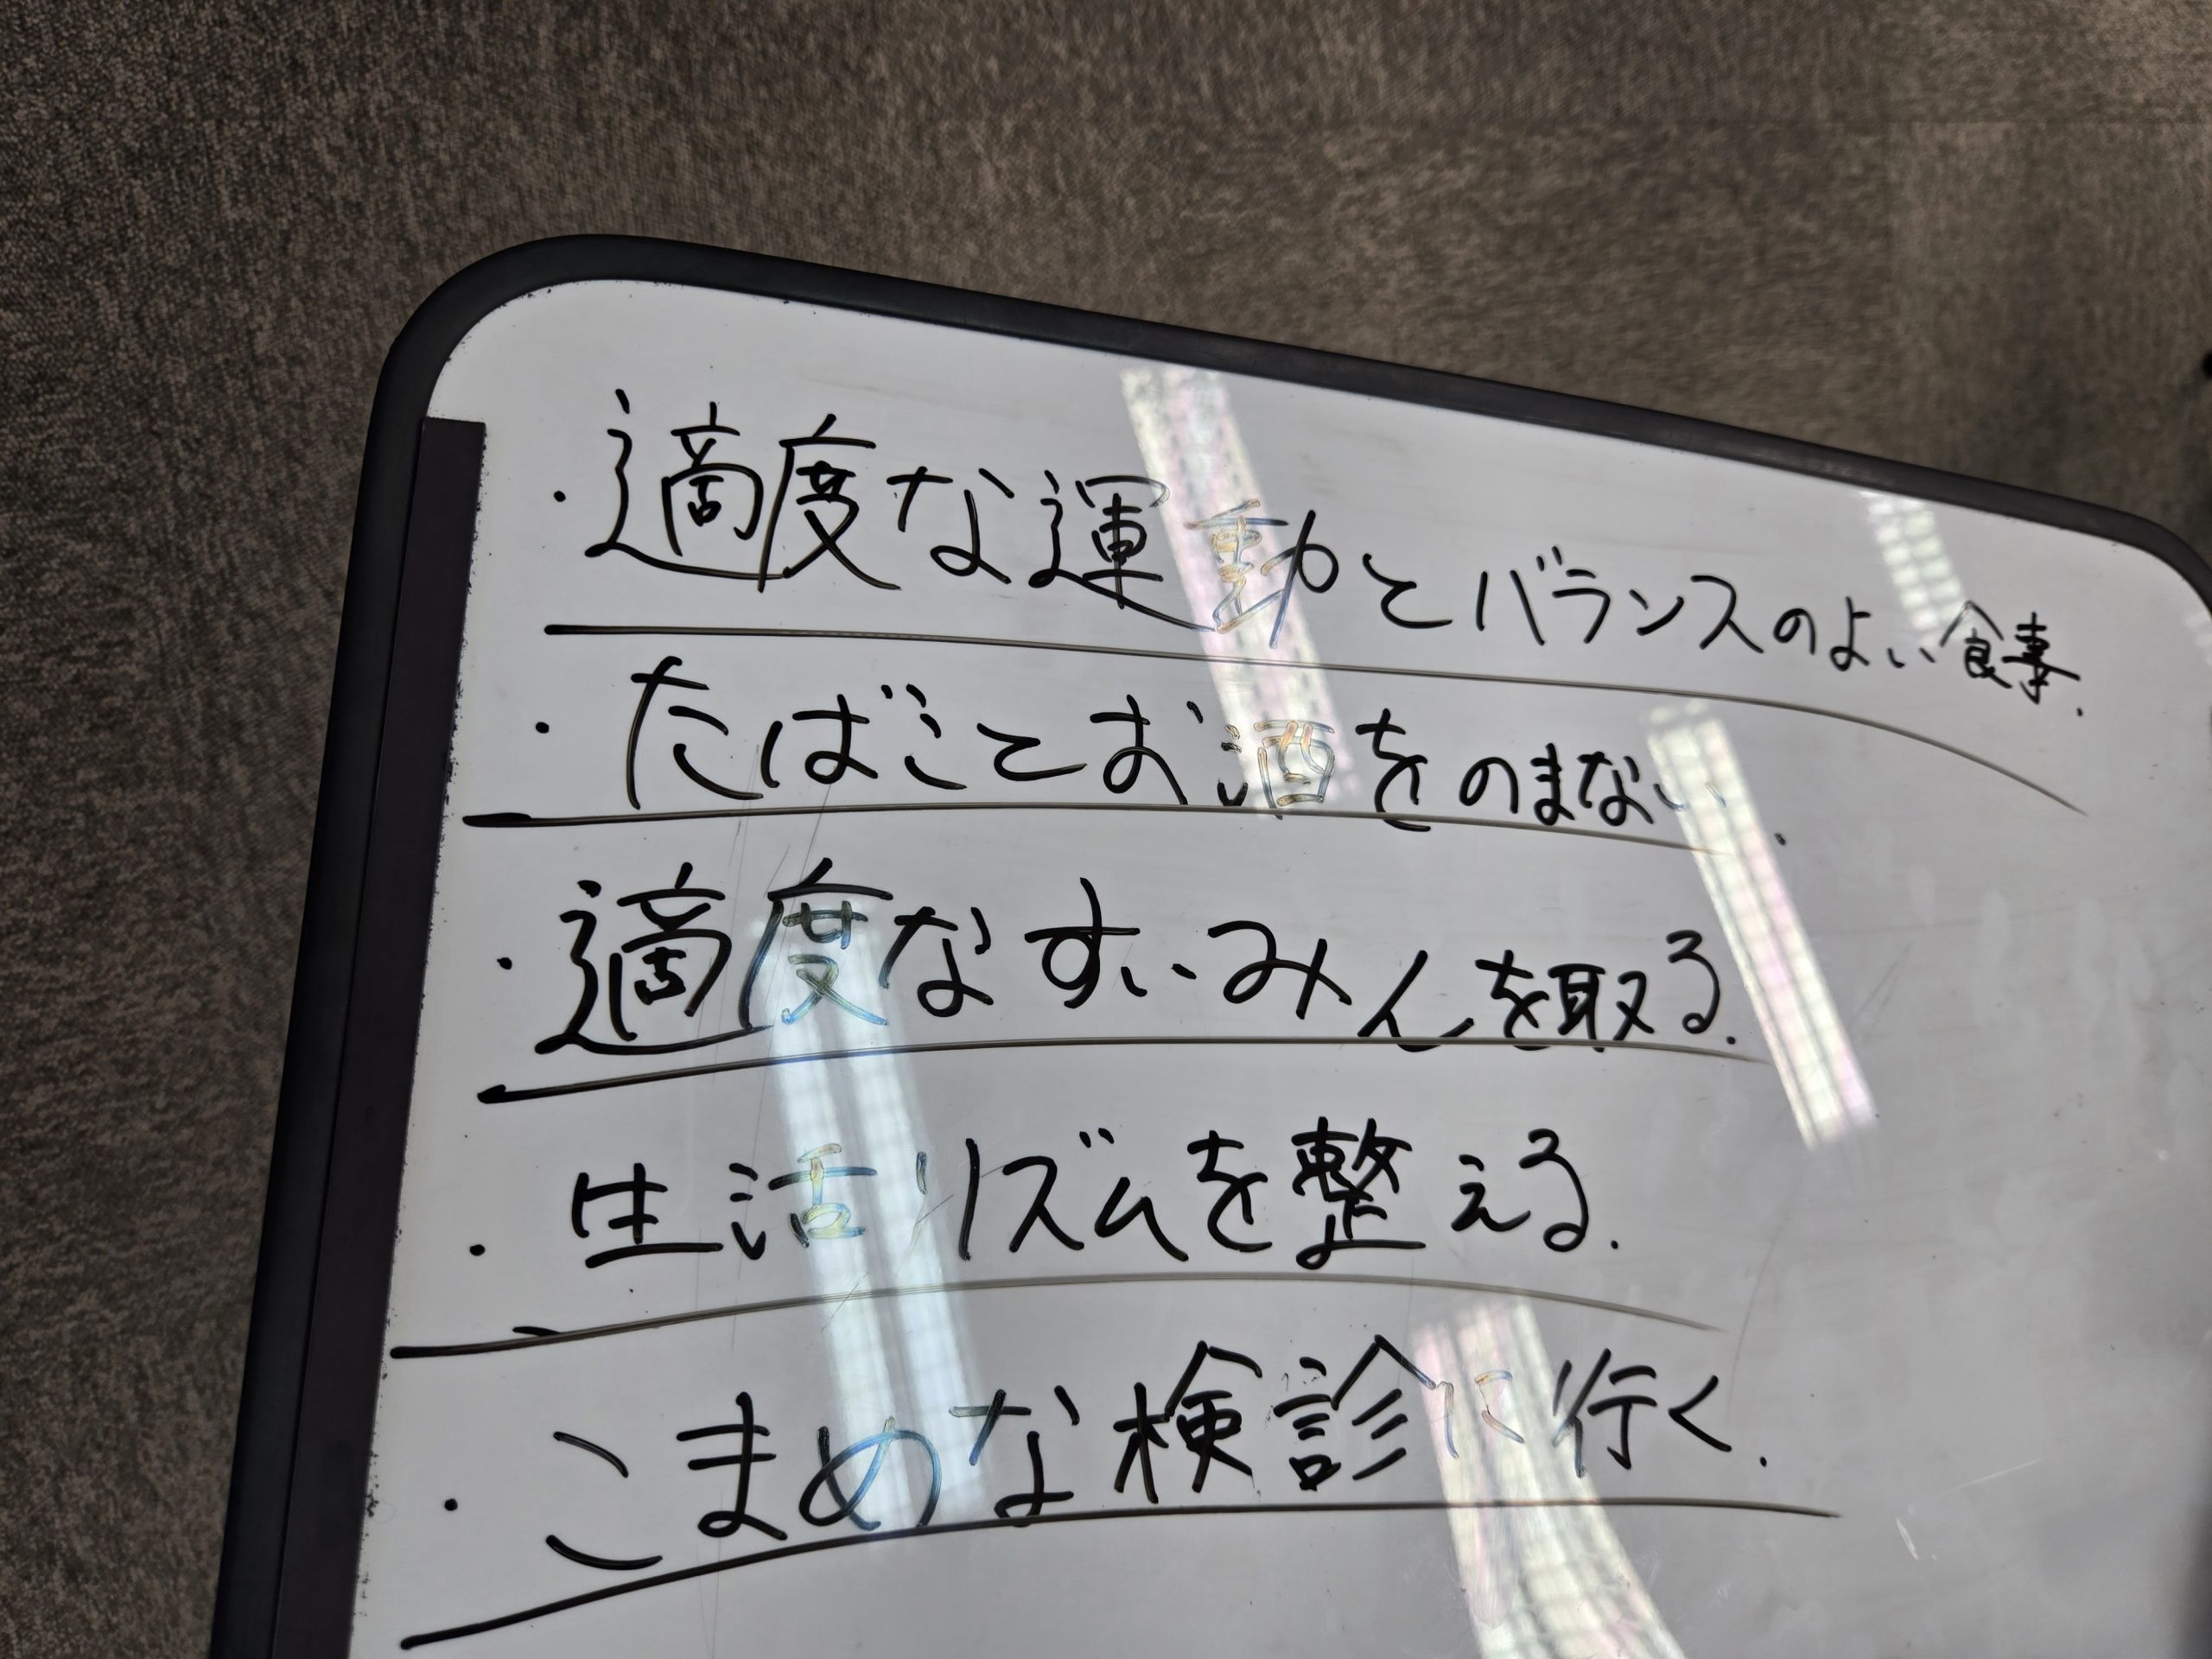 ・適度な運動とバランスのよい食事.
・たばことお酒をのまない.
・適度なすいみんを取る.
・生活リズムを整える.
・こまめな検診に行く.